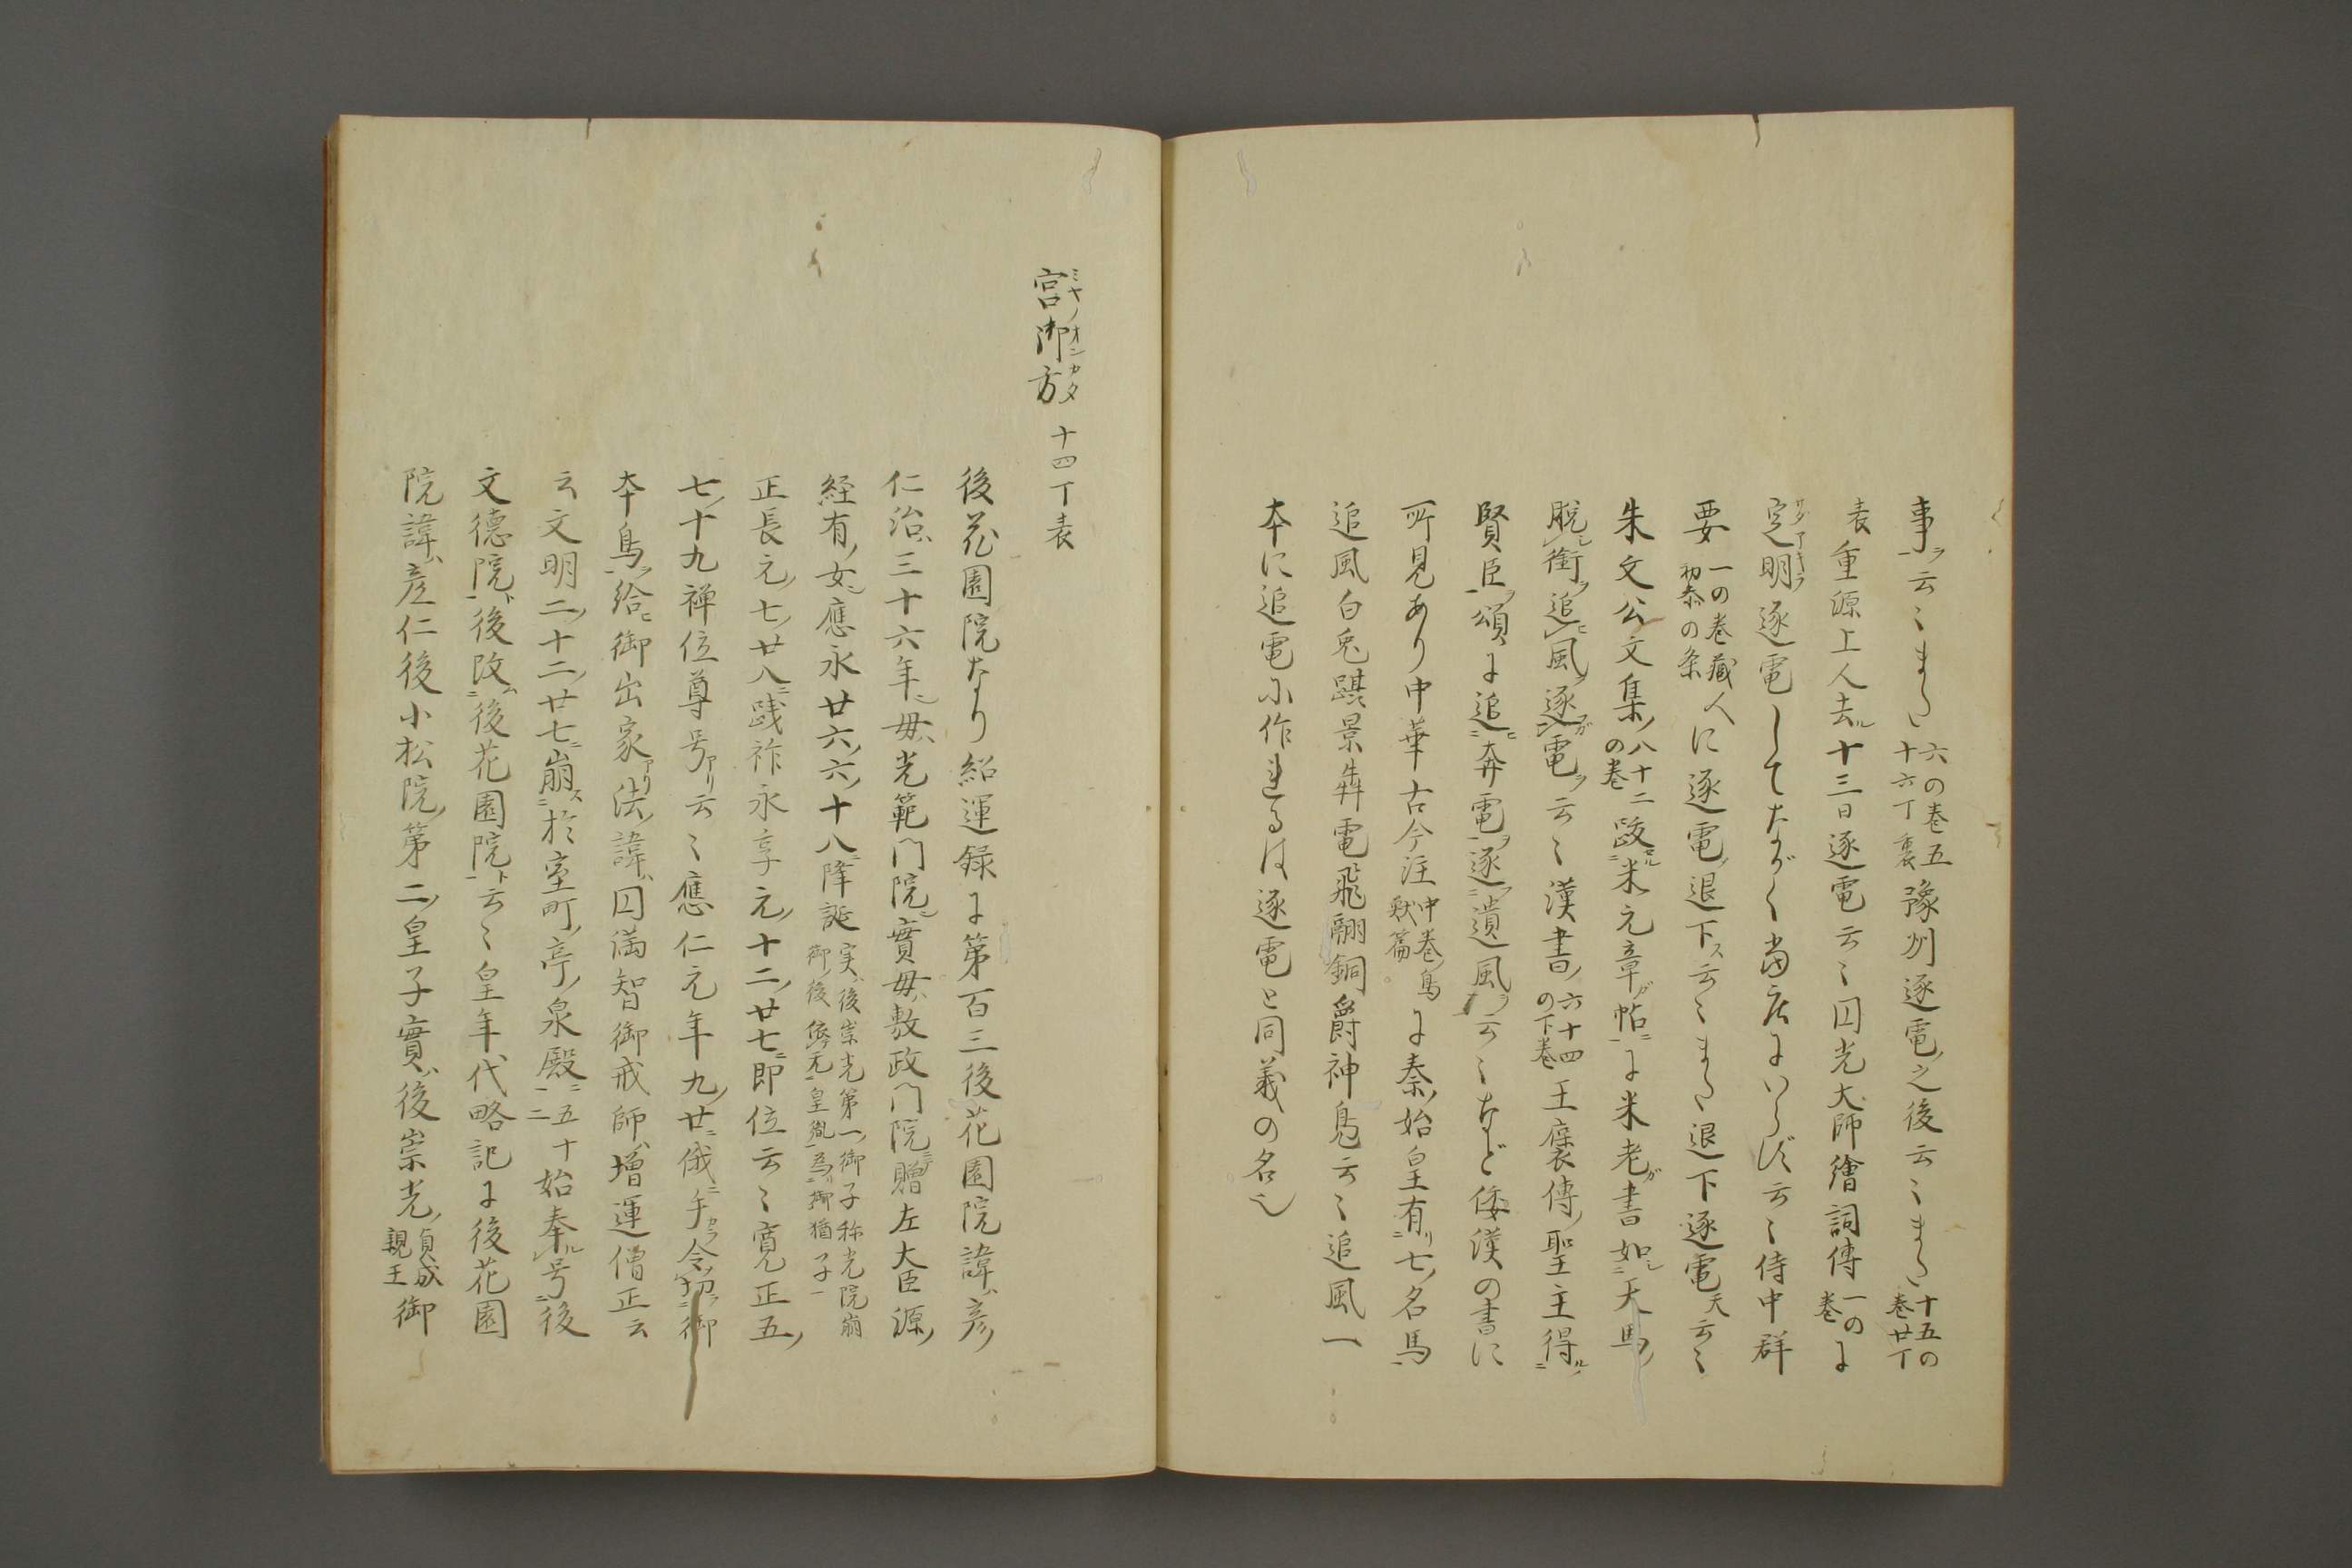 事ヲ云々また六の巻五十六丁裏豫州逐電之後云々また十五の巻廿丁
表重源上人去ル十三日逐電云々円光大師繪詞傳一の巻に
定明サダアキラ逐電してながく當庄にいらず云々侍中群
要一の巻蔵人初参の条に逐電ノ退下ス云々また退下逐電天云々
朱文公文集ノ八十二の巻跋セル米元章ガ帖ニに米老ガ書如シ天馬ノ
脱シ銜ヲ追ヒ風ヲ逐フガ電ヲ云々漢書ノ六十四の下巻王褒傳ノ聖主得ル
賢臣ヲ頌に追ヒ奔電ヲ逐フ遺風ヲ云々など倭漢の書に
所見あり中華古今注中巻鳥獣篇に秦ノ始皇有リ七ノ名馬
追風白兎躡景犇電飛翮銅爵神鳧云々追風一
本に追電に作れるは逐電と同義の名也
宮御方ミヤノオンカタ 十四丁表
後花園院なり紹運録に第百三後花園院諱ハ彦
仁治ハ三十六年ニ母ハ光範門院實母ハ敷政門院贈左大臣源ノ
経有ノ女應永廿六ノ六ノ十八ニ降誕実ハ後崇光第一ノ御子称光院崩御ノ後依無皇胤為リ御猶子
正長元ノ七ノ廿八ニ践祚永享元ノ十二ノ廿七ニ即位云々寛正五ノ
七ノ十九禅位尊号アリ云々應仁元年九ノ廿ニ俄ニ手カラ令切ラ御
本鳥ヲ給ニ御出家アリ法諱ハ円満智御戒師ハ増運僧正云
云文明二ノ十二ノ廿七ニ崩ス於室町ノ亭ノ泉殿ニ五十二始奉ル号シ後
文德院ト後改ム後花園院ト云々皇年代略記に後花園
院諱ハ彦仁後小松院ノ第二ノ皇子實ハ後崇光ノ貞成親王御